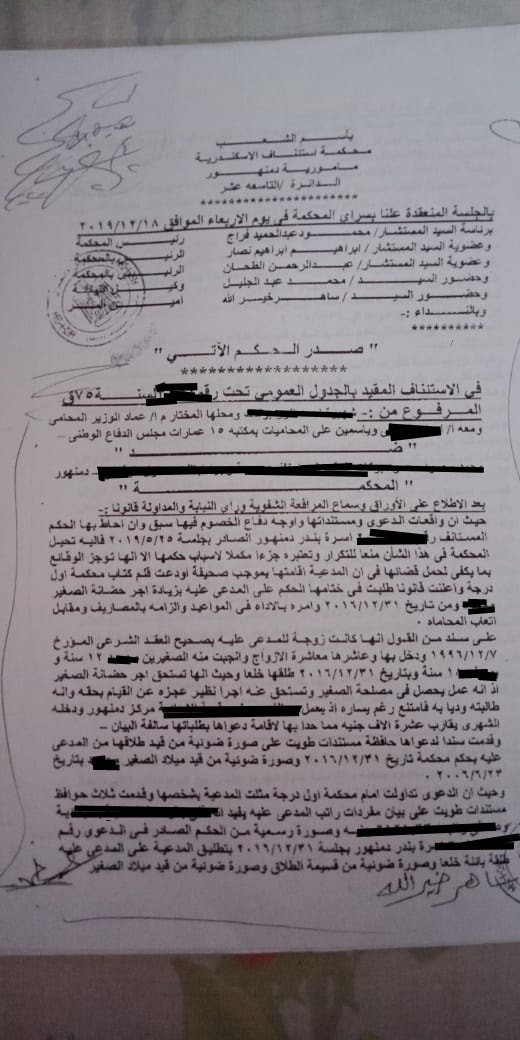 باسم الشعب
محكمة استئناف الاسكندرية
مامورية دمنهور
الدائرة /التاسعه عشر
********************
بالجلسة المنعقدة علنا بسراي المحكمة في يوم الاربعاء الموافق ٢٠١٩/١٢/١٨
برئاسة السيد المستشار/ محمود عبدالحميد فراج رئيس المحكمة
وعضوية السيد المستشار / ابراهيم ابراهيم نصار الرئيس بالمحكمة
وعضوية السيد المستشار/ عبدالرحمن الطحان الرئيس بالمحكمة
وحضور السيد / محمد عبد الجليل وكيل النيابة
وحضور السيد / ساهر خير الله أمين السر
وبالنداء :-
**********
" صدر الحكم الآتي "
******************
في الاستئناف المقيد بالجدول العمومي تحت رقم لسنة ٧٥ق
المرفوع من :- ومحلها المختار م ا/ عماد الوزير المحامى
ومعه ا/ وياسمين على المحاميات بمكتبه ١٥ عمارات مجلس الدفاع الوطنى
" ضد "
دمنهور
" المحكمة "
بعد الاطلاع على الأوراق وسماع المرافعة الشفوية وراي النيابة والمداولة قانونا :-
حيث ان واقعات الدعوى ومستنداتها واوجه دفاع الخصوم فيها سبق وان احاط بها الحكم
المستانف اسرة بندر دمنهور الصادر بجلسة ٢٠١٩/٥/٢٥ فاليه تحيل
المحكمة في هذا الشأن منعا للتكرار وتعتبره جزءا مكملا لاسباب حكمها الا انها توجز الوقائع
بما يكفي لحمل قضائها في ان المدعية اقامتها بموجب صحيفة اودعت قلم كتاب محكمة اول
درجة واعلنت قانونا طلبت في ختامها الحكم على المدعى عليه بزيادة اجر حضانة الصغير
ومن تاريخ ٢٠١٦/١٢/٣١ وامره بالاداء في المواعيد والزامه بالمصاريف ومقابل
اتعاب المحاماه ٠
على سند من القول انها كانت زوجة للمدعى عليه بصحيح العقد الشرعى المؤرخ
١٩٩٦/١٢/٧ ودخل بها وعاشرها معاشرة الازواج وانجبت منه الصغيرين ١٢ سنة و
سنة وبتاريخ ٢٠١٦/١٢/٣١ طلقها خلعا وحيث انها تستحق اجر حضانة الصغير
اذ انه عمل يحصل في مصلحة الصغير وتستحق عنه اجرا نظير عجزه عن القيام بحقه وانه
طالبته وديا به فامتنع رغم يساره اذ يعمل مركز دمنهور ودخله
الشهرى يقارب عشرة الاف جنيه مما حدا بها لاقامة دعواها بطلباتها سالفة البيان –
وقدمت سندا لدعواها حافظة مستندات طويت على صورة ضوئية من قيد طلاقها من المدعى
عليه بحكم محكمة تاريخ ٢٠١٦/١٢/٣١ وصورة ضوئية من قيد ميلاد الصغير بتاريخ
٢٠٠٦/٦/٢٣ ٠
وحيث ان الدعوى تداولت امام محكمة اول درجة مثلت المدعية بشخصها وقدمت ثلاث حوافظ
مستندات طويت على بيان مفردات راتب المدعى عليه يفيد
وصورة رسمية من الحكم الصادر فى الدعوى رقم
بندر دمنهور بجلسة ٢٠١٦/١٢/٣١ بتطليق المدعية على المدعى عليه
طلقة بائنة خلعا وصورة ضوئية من قسيمة الطلاق وصورة ضوئية من قيد ميلاد الصغير
ساهر خير الله